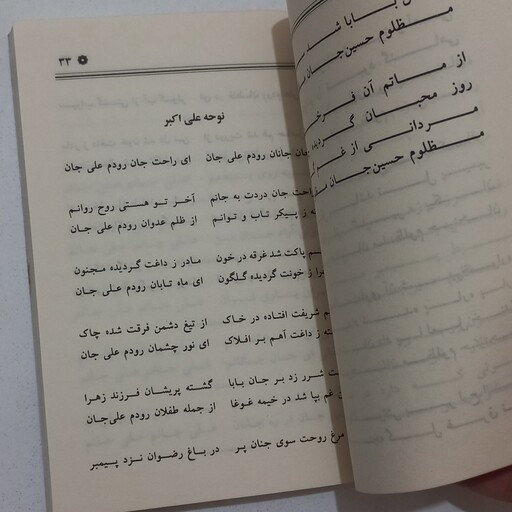 ۳۳
نوحه علی اکبر
جان جانان رودم علی جان ای راحت جان رودم علی جان
راحت جان دردت به جانم آخر تو هستی روح روانم
ز پیکر تاب و توانم از ظلم عدوان رودم علی جان
پاکت شد غرقه در خون مادر ز داغت گردیده مجنون
ز خونت گردیده گلگون ای ماه تابان رودم علی جان
شریفت افتاده در خاک از تیغ دشمن فرقت شده چاک
ز داغت آهم بر افلاک ای نور چشمان رودم علی جان
شرر زد بر جان بابا گشته پریشان فرزند زهرا
غم بپا شد در خیمه غوغا از جمله طفلان رودم علی‌جان
مرغ روحت سوی جنان پر در باغ رضوان نزد پیمبر
بابا شد
مظلوم حسین‌جان
از ماتم آن
روز محبان گردید
مردانی از غم
مظلوم حسین‌جان